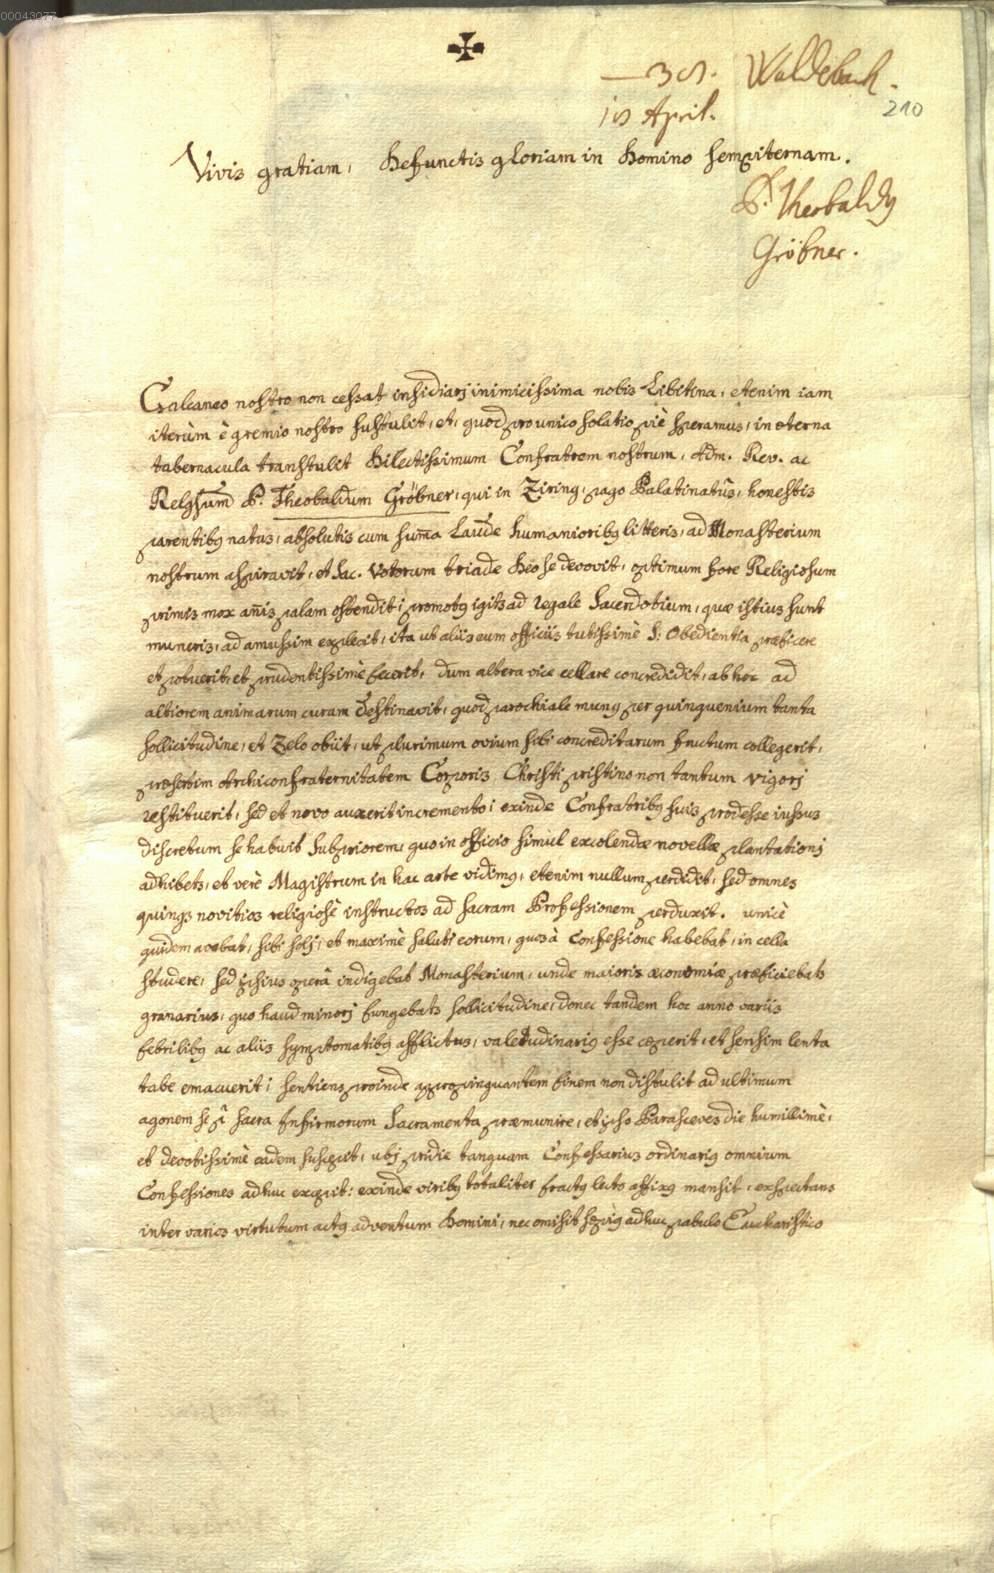 00043077
Waldebach.
10 April.
210
Vivis gratiam, Defunctis gloriam in Domino sempiternam.
P. Theobaldq
Gröbner.
Calcaneo nostro non cessat insidiarj inimicissima nobis Libitina, etenim iam
iterùm è gremio nostro sustulit, et, quod pro unico solatio piè speramus, in æterna
tabernacula transtulit Dilectissimum Confratrem nostrum, Adm. Rev. ac
Relgsum P. Theobaldum Gröbner, qui in Ziring, pago Palatinatûs, honestis
parentibq natus, absolutis cum sum̄a Laude humanioribq litteris, ad Monasterium
nostrum aspiravit, et sac. Votorum triade Deo se devovit, optimum fore Religiosum
primis mox an̄is palam ostendit; promotq igitr ad regale Sacerdotium, quæ istius sunt
muneris, ad amussim explevit, ita ut aliis eum officiis tutissimè S: Obedientia præficere
et potuerit, et prudentissimè fecerit, dum altera vice cellare concredidit, ab hoc ad
altiorem animarum curam destinavit, quod parochiale munq per quinquenium tanta
sollicitudine, et Zelo obiit, ut plurimum ovium sibi concreditarum fructum collegerit,
præsertim Archiconfraternitatem Corporis Christi pristino non tantum vigorj
restituerit, sed et novo auxerit incremento; exinde Confratribq suis prodesse iussus
discretum se habuit Subpriorem, quo in officio simul excolendæ novellæ plantationj
adhibetr, et verè Magistrum in hac arte vidimq, etenim nullum perdidit, sed omnes
quinqs novitios religiosè instructos ad sacram Professionem perduxit. unicè
quidem avebat, sibi solj, et maximè saluti eorum, quos à Confessione habebat, in cella
studere, sed ipsius operâ indigebat Monasterium, unde maioris œconomiæ præficiebatr
granarius, quo haud minorj fungebatr sollicitudine, donec tandem hoc anno variis
febrilibq ac aliis symptomatibq afflictus, valetudinariq esse cœperit, et sensim lenta
tabe emacuerit; sentiens proinde appropinquantem finem non distulit ad ultimum
agonem se p sacra Infirmorum Sacramenta præmunire, et ipso Parasceves die humillimè,
et devotissimè eadem suscepit, ubj pridie tanquam Confessarius ordinariq omnium
Confessiones adhuc excepit: exinde viribq totaliter fractq lecto affixq mansit, exspectans
inter varios virtutum actq adventum Domini, nec omisit sæpiq adhuc pabulo Eucharistico